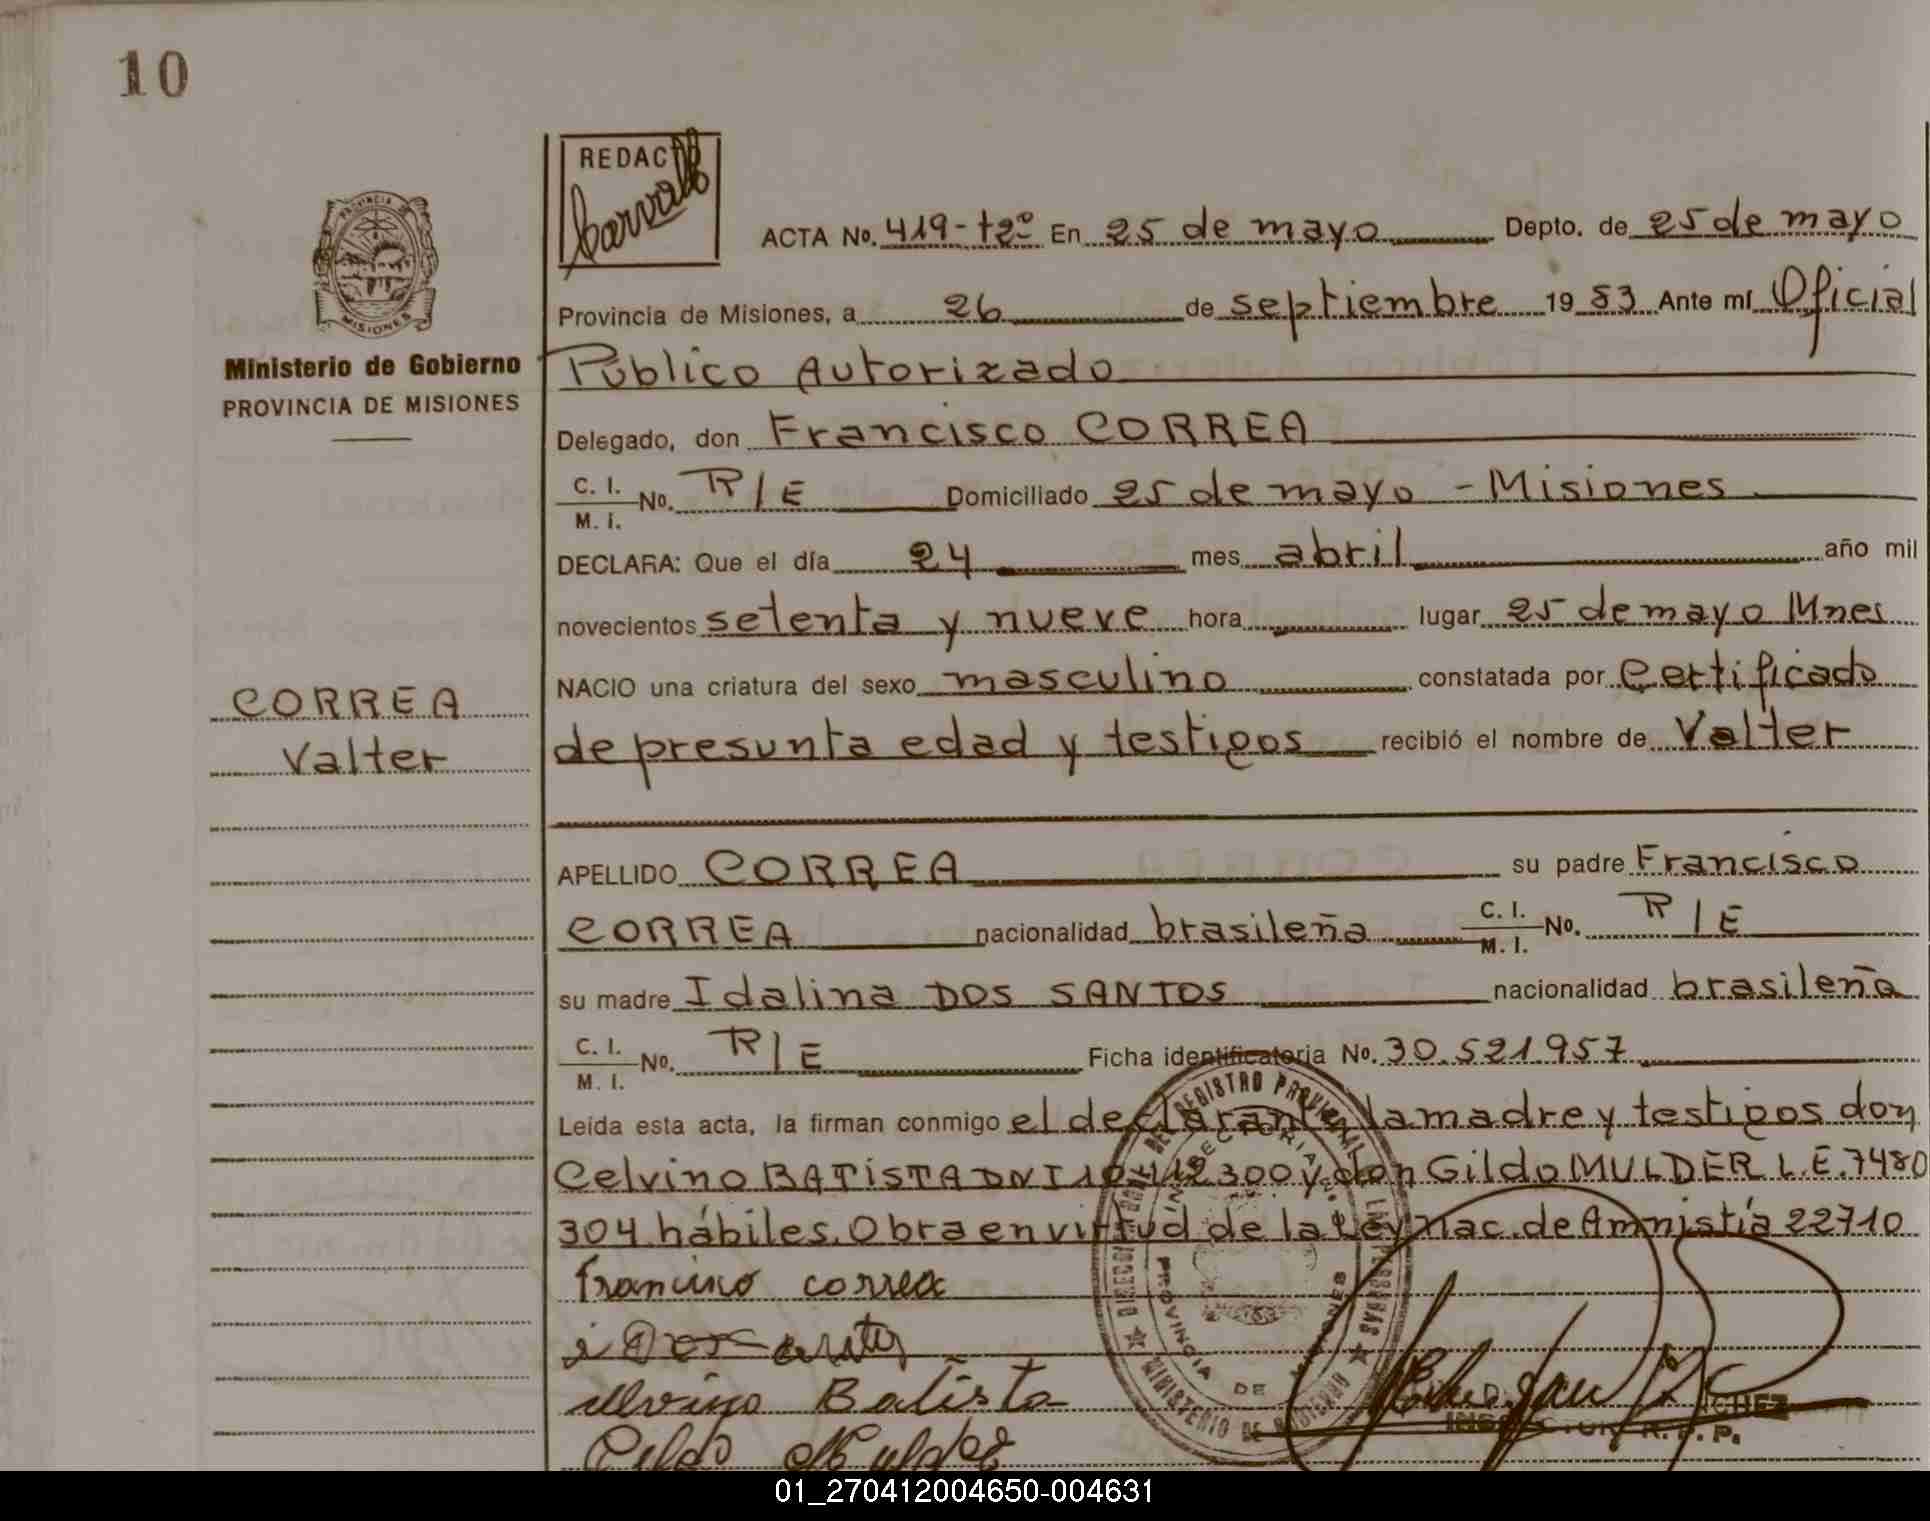 10
REDACTO
Carvallo
ACTA No. 419-tº2º En 25 de mayo Depto. de 25 de mayo
Provincia de Misiones, a 26 de septiembre 1983 Ante mí Oficial
Ministerio de Gobierno
PROVINCIA DE MISIONES
Público Autorizado
Delegado, don Francisco CORREA
C. I. / M. I. No. R/E Domiciliado 25 de mayo - Misiones
DECLARA: Que el día 24 mes abril año mil
novecientos setenta y nueve hora lugar 25 de mayo Mnes
NACIO una criatura del sexo masculino constatada por Certificado
CORREA
Valter
de presunta edad y testigos recibió el nombre de Valter
APELLIDO CORREA su padre Francisco
CORREA nacionalidad brasileña C. I. / M. I. No. R/E
su madre Idalina DOS SANTOS nacionalidad brasileña
C. I. / M. I. No. R/E Ficha identificatoria No. 30.521.957
Leída esta acta, la firman conmigo el declarante la madre y testigos don
Celvino BATISTA DNI 10.412300 y don Gildo MULDER L.E. 7480
304 hábiles. Obra en virtud de la Ley nac. de Amnistía 22710
Francisco correa
i Dos santos
elvino Batista
Gildo Mulder
REGISTRO PROVINCIAL DE LAS PERSONAS
MINISTERIO DE GOBIERNO
PROVINCIA DE MISIONES
INSPECTOR R. P. P.
01_270412004650-004631